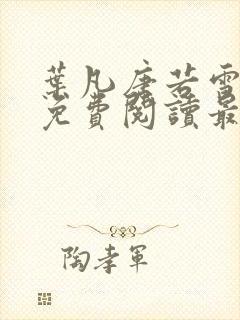 葉凡唐若雪
免費閱讀最
陶孝軍